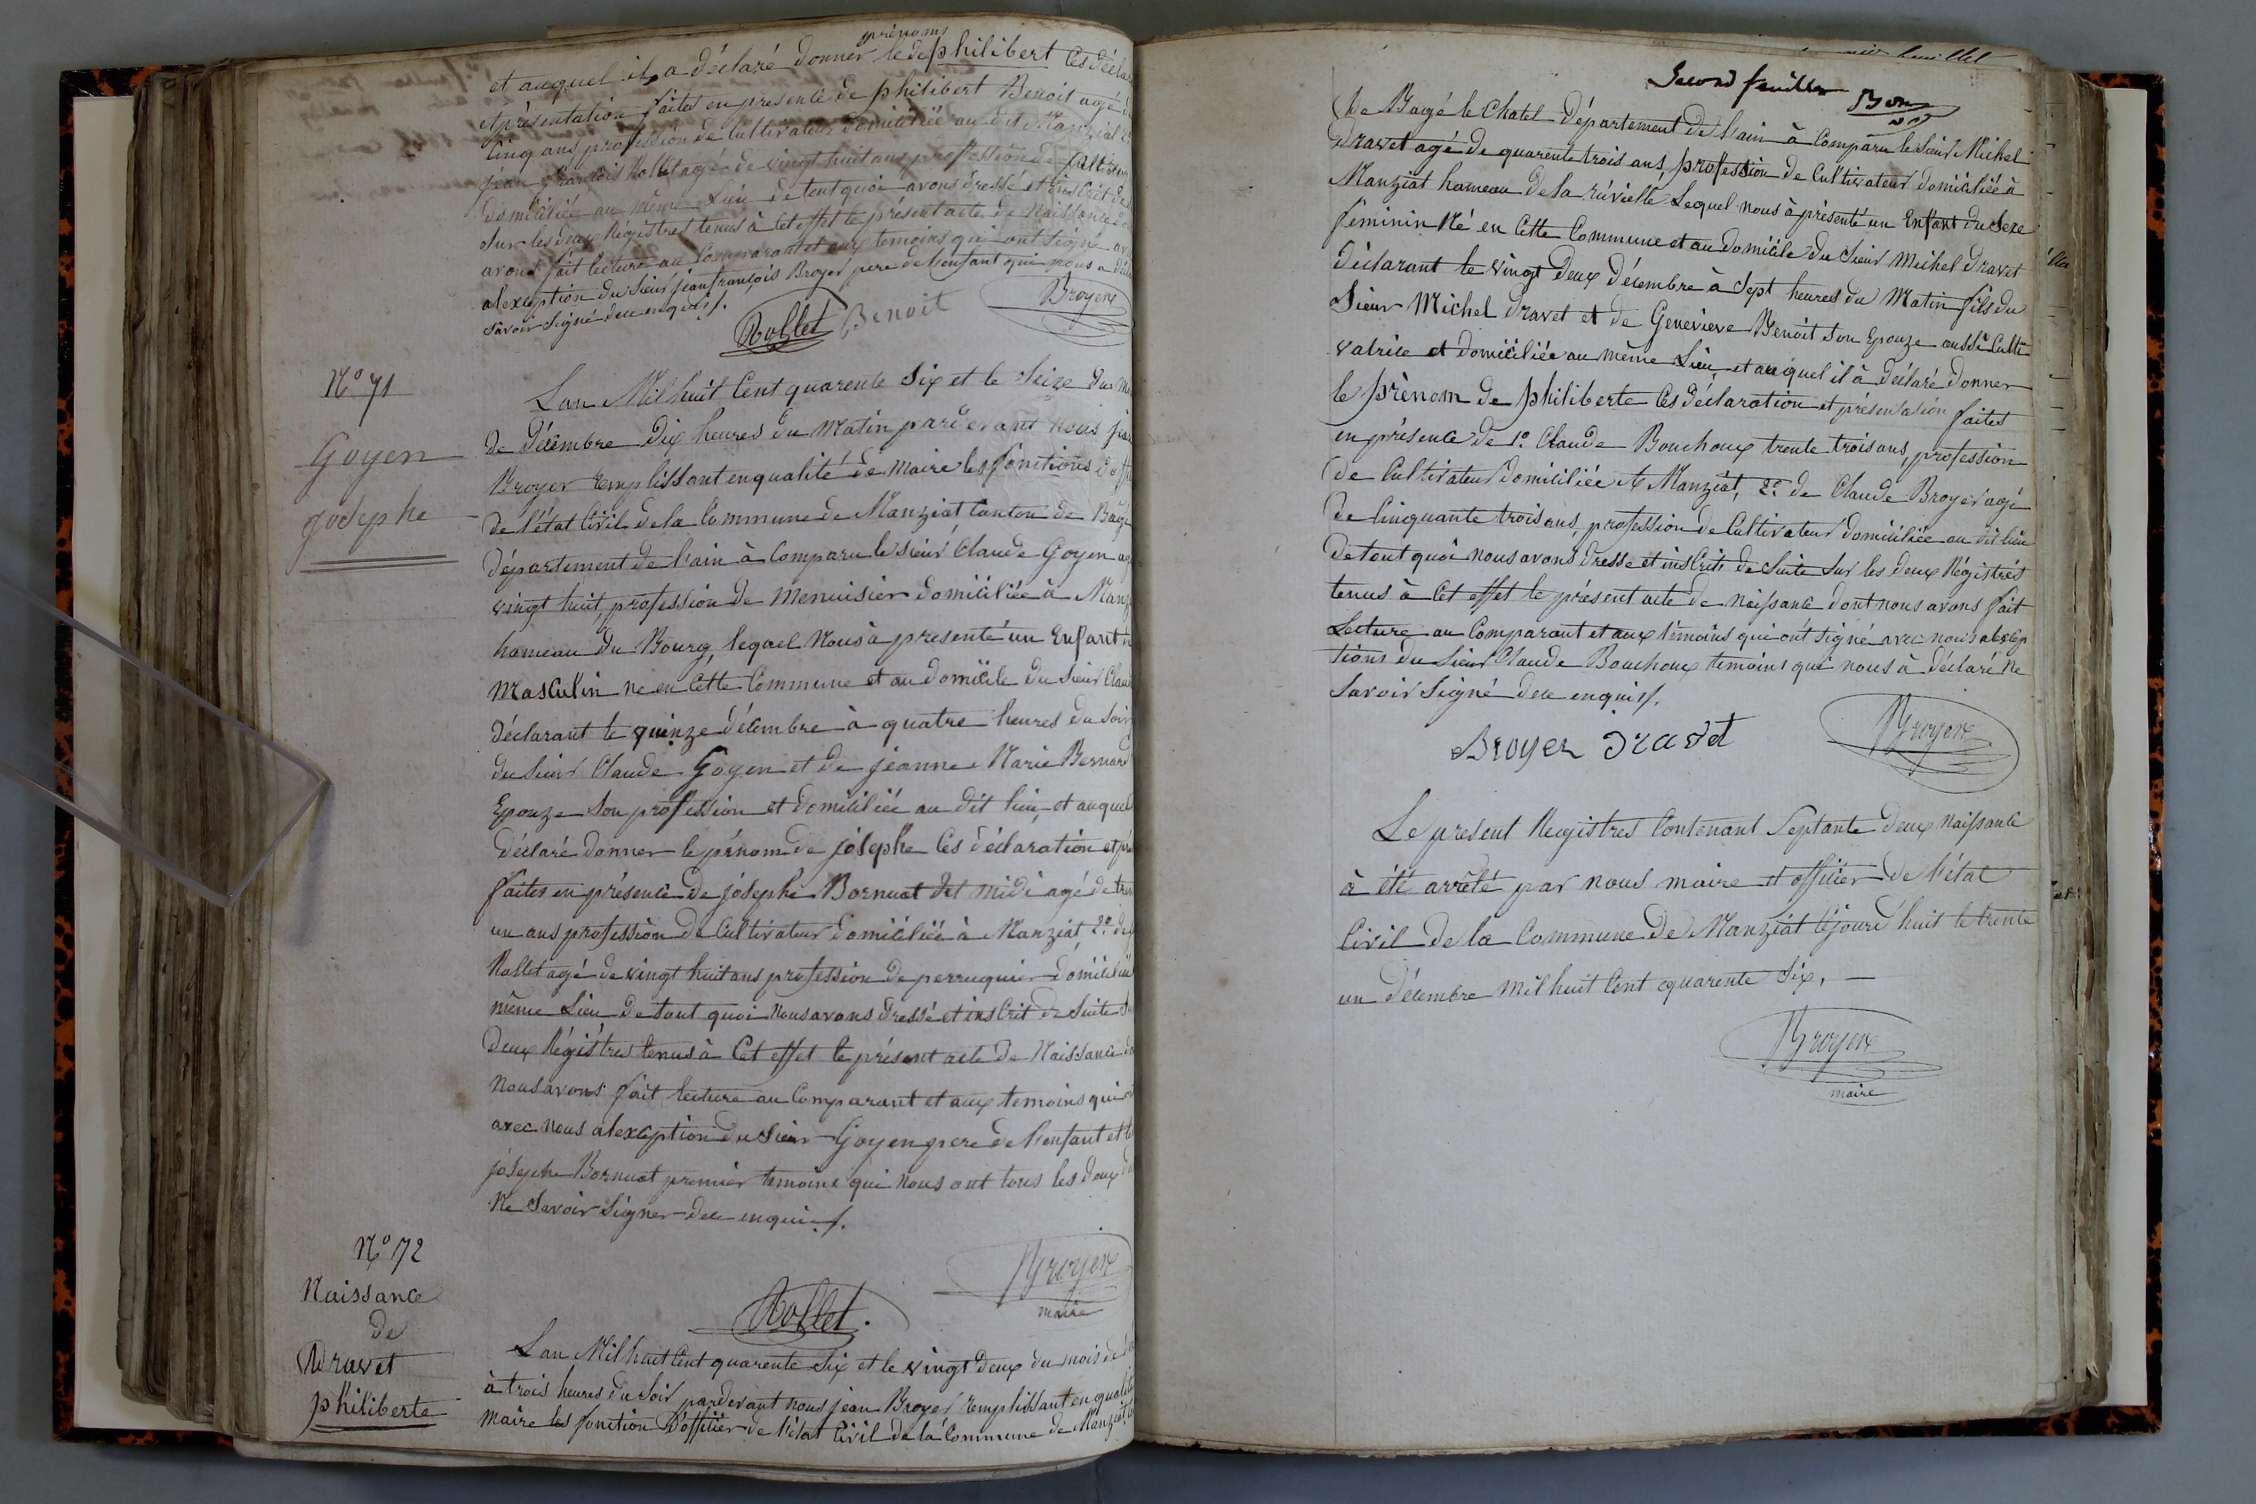 prénoms
et auquel il a déclaré donner le de philibert Ces décla
et présentation faites en presence de philibert Benoit agé d
Cinq ans profession de Cultivateur domiciliée au dit Manziat 2º
jean francois Rollet agé de vingt huit ans profession de
domiciliée au même Lieu de tout quoi avons dressé et inscrit de
Sur les deux Régistres tenus à Cet effet le présent acte de Naissance d
avons fait lecture au Comparant et aux temoins qui ont Signé av
alexception du Sieur jean francois Broyer pere de l'enfant qui nous a décla
Savoir Signé de ce enquis.
Rollet Benoit Broyer
Nº 71
Goyen
josephe
Lan Mil huit Cent quarente Six et le Seize du mo
de décembre Dix heures du Matin pardevant nous jean
Broyer remplissant en qualité de maire les fonctions d'offi
de l'état Civil de la Commune de Manziat Canton de Bagé
département de l'ain à Comparu le sieur Claude Goyen ag
vingt huit, profession de Menuisier domiciliée à Manz
hameau du Bourg, lequel Nous à presenté un Enfant d
Masculin ne en Cette Commune et au domicile du Sieur Claud
déclarant le quinze décembre à quatre heures du Soir
du Sieur Claude Goyen et de jeanne Marie Bernard
Epouze Son profession et domiciliée au dit lieu, et auquel
déclaré donner le prénom de josephe Ces déclaration et pré
faites en présence de josephe Bornuat dit midi agé de tren
un ans profession de Cultivateur domiciliée à Manziat, 2º de
Rollet agé de vingt huit ans profession de perruquier domiciliée
même Lieu De tout quoi Nous avons dressé et inscrit de Suite S
deux Régistres tenus à Cet effet le présent acte de Naissance do
Nous avons fait lecture au Comparant et aux temoins qui on
avec nous alexception du Sieur Goyen pere de l'enfant et le
josephe Bornuat premier temoins qui nous ont tous les deux dé
Ne Savoir Signer de ce enquis.
Broyer
maire
Rollet.
Nº 72
Naissance
de
Dravet
philiberte
Lan Mil huit Cent quarente Six et le vingt deux du mois de d
à trois heures du Soir pardevant nous jean Broyer remplissant en qualité
maire les fonction D'officier de l'état Civil de la Commune de Manziat
Second feuillet Bon
De Bagé le Chatel département de l'ain à Comparu le Sieur Michel
Dravet agé de quarente trois ans, profession de Cultivateur domiciliée à
Manziat hameau de la rüvielle Lequel nous à présenté un Enfant du Sexe
féminin Né en Cette Commune et au domicile du Sieur Michel Dravet
déclarant le vingt Deux décembre à Sept heures du Matin fils du
Sieur Michel Dravet et de Genevieve Benoit Son Epouze aussi Culti
vatrice et domiciliée au même Lieu, et auquel il à déclaré donner
le prènom de philiberte Ces déclaration et présentation faites
en présence de 1º Claude Bouchoux trente trois ans, profession
de Cultivateur domiciliée A Manziat, 2º de Claude Broyer agé
de Cinquante trois ans, profession de Cultivateur domiciliée au dit lieu
de tout quoi nous avons dresse et inscrits de Suite Sur les deux Régistres
tenus à Cet effet le présent acte de naissance dont nous avons fait
Lecture au Comparant et aux témoins qui ont signé avec nous alexcep
tions du Sieur Claude Bouchoux temoins qui nous à déclaré Ne
Savoir Signé de ce enquis.
Broyer Dravet Broyer
Le present Registres Contenant Septante deux Naissance
à été arrêté par nous maire et officier de l'état
Civil de la Commune de Manziat Cejourd'huit le trente
un décembre mil huit Cent quarente Six. —
Broyer
maire